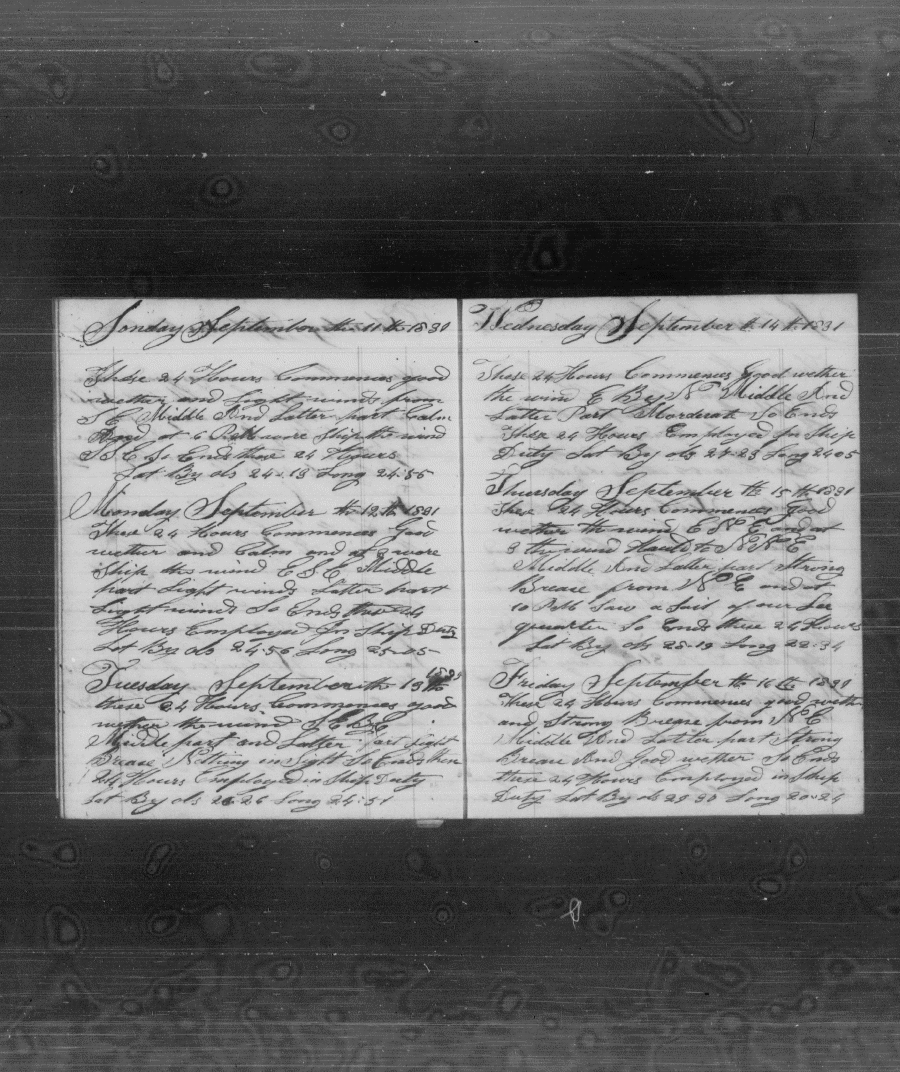 Sonday September th 11 th 1830
These 24 Hours Commences good
wether and Light winds from
S E Middle And Latter part Calm
And at 6 P.M. wore Ship the wind
S. S. E So Ends these 24 Hours
Lat By obs 24-13 Long 24:55
Monday September th 12 th 1831
These 24 Hours Commences Good
wether and Calm and at 2 wore
Ship the wind E S E Middle
part Light winds Latter part
Light wind So Ends these 24
Hours Employed In Ship Duty
Lat By obs 24:56 Long 25-05
Tuesday September th 13 th
these 24 Hours Commences good
wether the wind
Middle part and Latter Part Light
Brease Nothing in Sight So Ends these
24 Hours Employed in Ship Duty
Lat By obs 26-26 Long 24:51
Wednesday September th 14 th 1831
These 24 Hours Commences Good wether
the wind E By N Middle And
Latter Part Morderate So Ends
These 24 Hours Employed for Ship
Duty Lat By obs 27-23 Long 24 05
Thursday September th 15 th 1831
these 24 Hours Commences Good
wether the wind E N E and at
3 the wind Hauld to N N E
Middle And Latter part Strong
Brease from N E and at
10 Saw a Sail of our Lee
quarter So Ends these 24 Hours
Lat By obs 28-19 Long 22:34
Friday September th 16 th 1830
these 24 Hours Commences good wether
and Strong Brease from N E
Middle And Latter part Strong
Brease And Good wether So Ends
these 24 Hours Employed in Ship
Duty Lat By obs 29 30 Long 20:24